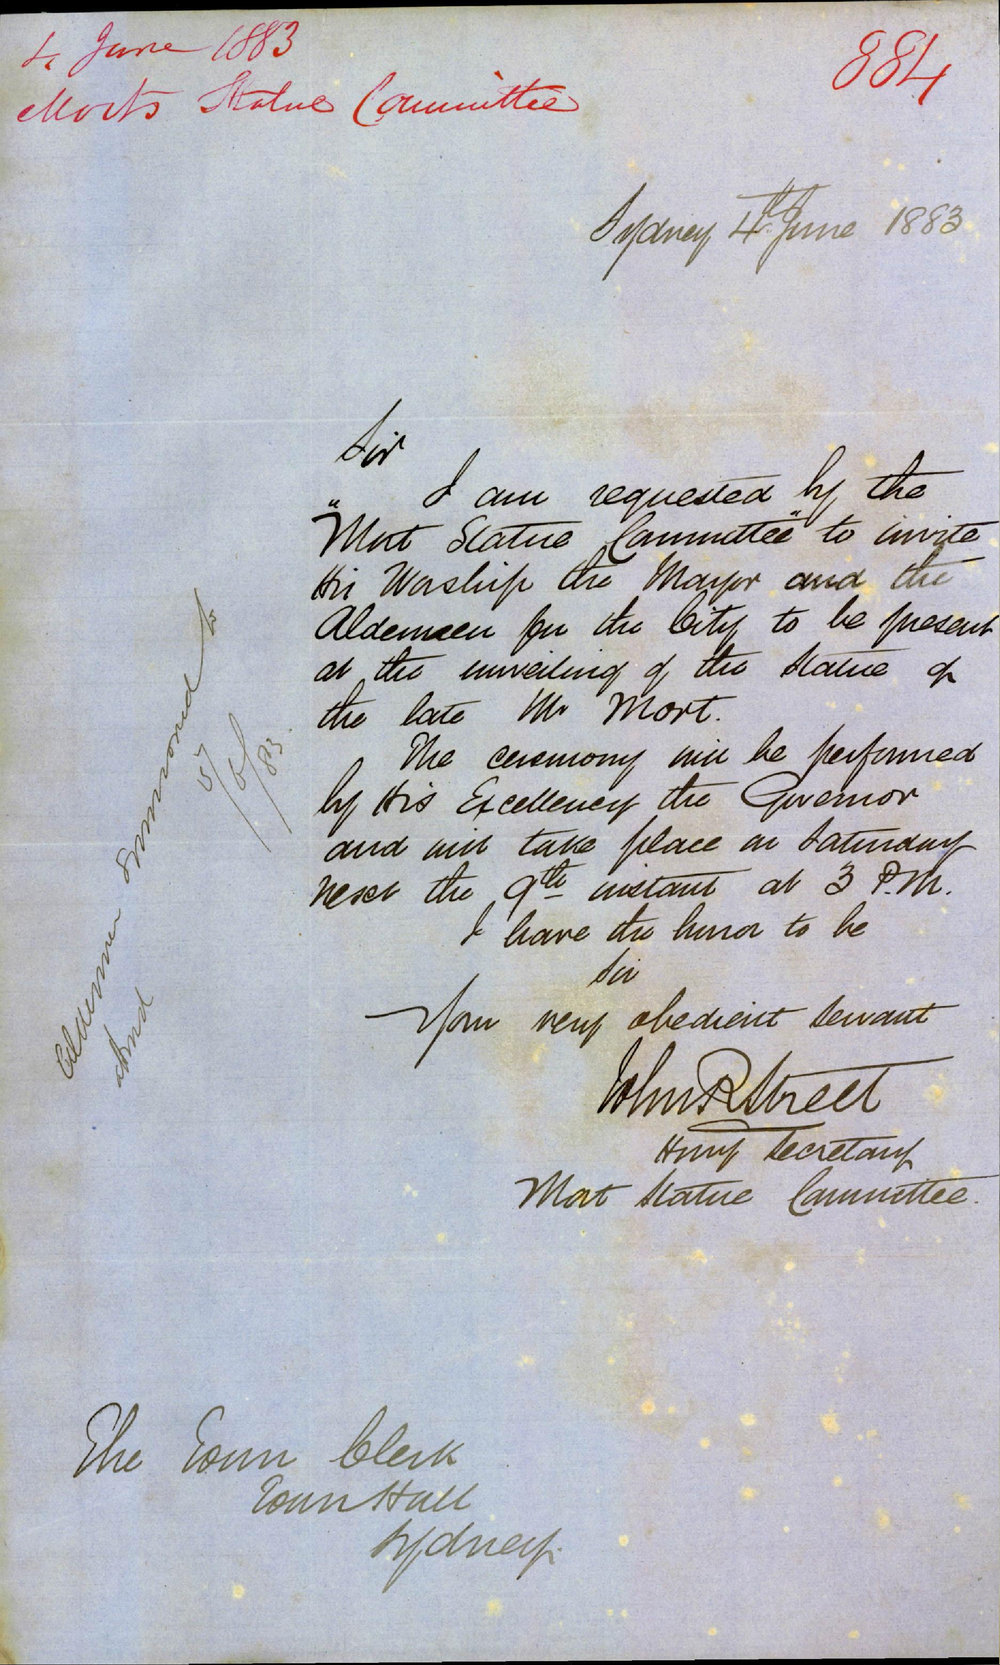 4 June 1883
Morts Statue Committee
884
Sydney 4th June 1883
Sir
I am requested by the
"Mort Statue Committee" to invite
His Worship the Mayor and the
Aldermen for the City to be present
at the unveiling of the Statue of
the late Mr Mort.
The ceremony will be performed
by His Excellency the Governor
and will take place on Saturday
next the 9th instant at 3 P.M.
I have the honor to be
Sir
Your very obedient servant
John R Street
Hony Secretary
Mort Statue Committee.
Aldermen Summoned to
attend
5/6/83.
The Town Clerk
Town Hall
Sydney.